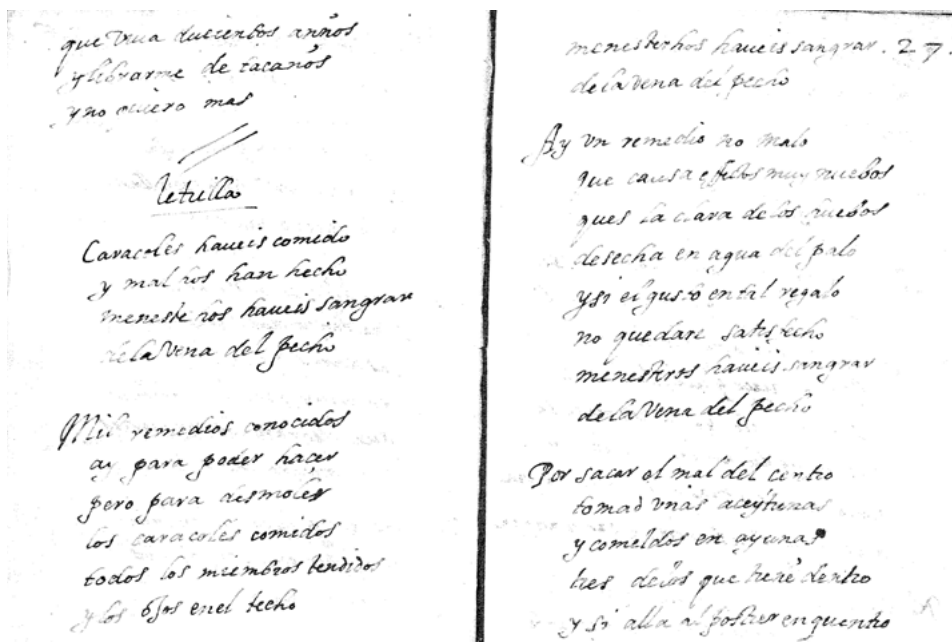 que viua ducientos años
y librarme de tacaños
y no quiero mas
letrilla
Caracoles haueis comido
y mal hos han hecho
meneste hos haueis sangrar
de la Vena del pecho
Mil remedios conocidos
ay para poder hacer
pero para desmoler
los caracoles comidos
todos los miembros tendidos
y los ojos enel techo
menesterhos haueis sangrar. 27.
de la vena del pecho
Ay vn remedio no malo
que causa efectos muy nuebos
ques la clara de los huebos
desecha en agua del palo
y si el gusto en tal regalo
no quedare satisfecho
menesteros haueis sangrar
de la Vena del pecho
Por sacar el mal del centro
tomad vnas aceytunas
y comeldos en ayunas
tres que tiene dentro
y si alla al postrer enquentro